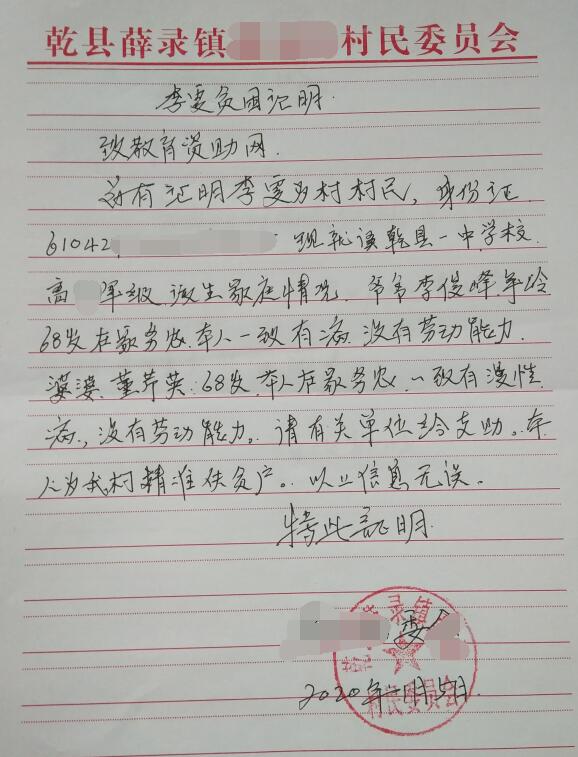 乾县薛录镇 村民委员会
李雯贫困证明.
致教育资助网.
兹有证明李雯为村村民, 身份证
61042 现就读乾县一中学校.
高 年级. 该生家庭情况. 爷爷李俊峰. 年龄
68岁在家务农. 本人一致有病. 没有劳动能力.
婆婆. 董芹英. 68岁. 本人在家务农. 一致有漫性
病., 没有劳动能力. 请有关单位给支助. 本
人为我村精准扶贫户. 以上信息无误.
特此证明.
录镇
委
2020年 月
村民委员会